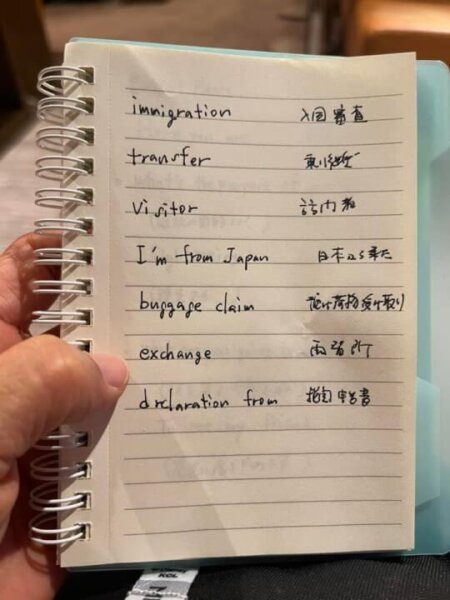 imnigration 入国審査
transfer 乗り継ぎ
visitor 訪問者
I'm from Japan 日本から来た
buggage claim 受け取り
exchange 両替所
drclaration from 申告書
KCL